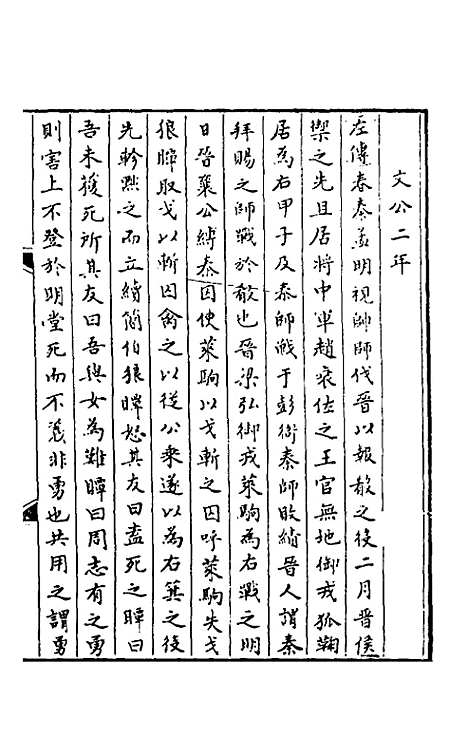 文公二年
左傳春秦孟明視帥師伐晉以報殽之役二月晉侯
禦之先且居將中軍趙衰佐之王官無地御戎狐鞫
居為右甲子及秦師戰于彭衙秦師敗績晉人謂秦
拜賜之師戰於殽也晉梁弘御戎萊駒為右戰之明
日晉襄公縛秦囚使萊駒以戈斬之囚呼萊駒失戈
狼瞫取戈以斬囚禽之以從公乘遂以為右箕之役
先軫黜之而立續簡伯狼瞫怒其友曰盍死之瞫曰
吾未獲死所其友曰吾與女為難瞫曰周志有之勇
則害上不登於明堂死而不義非勇也共用之謂勇